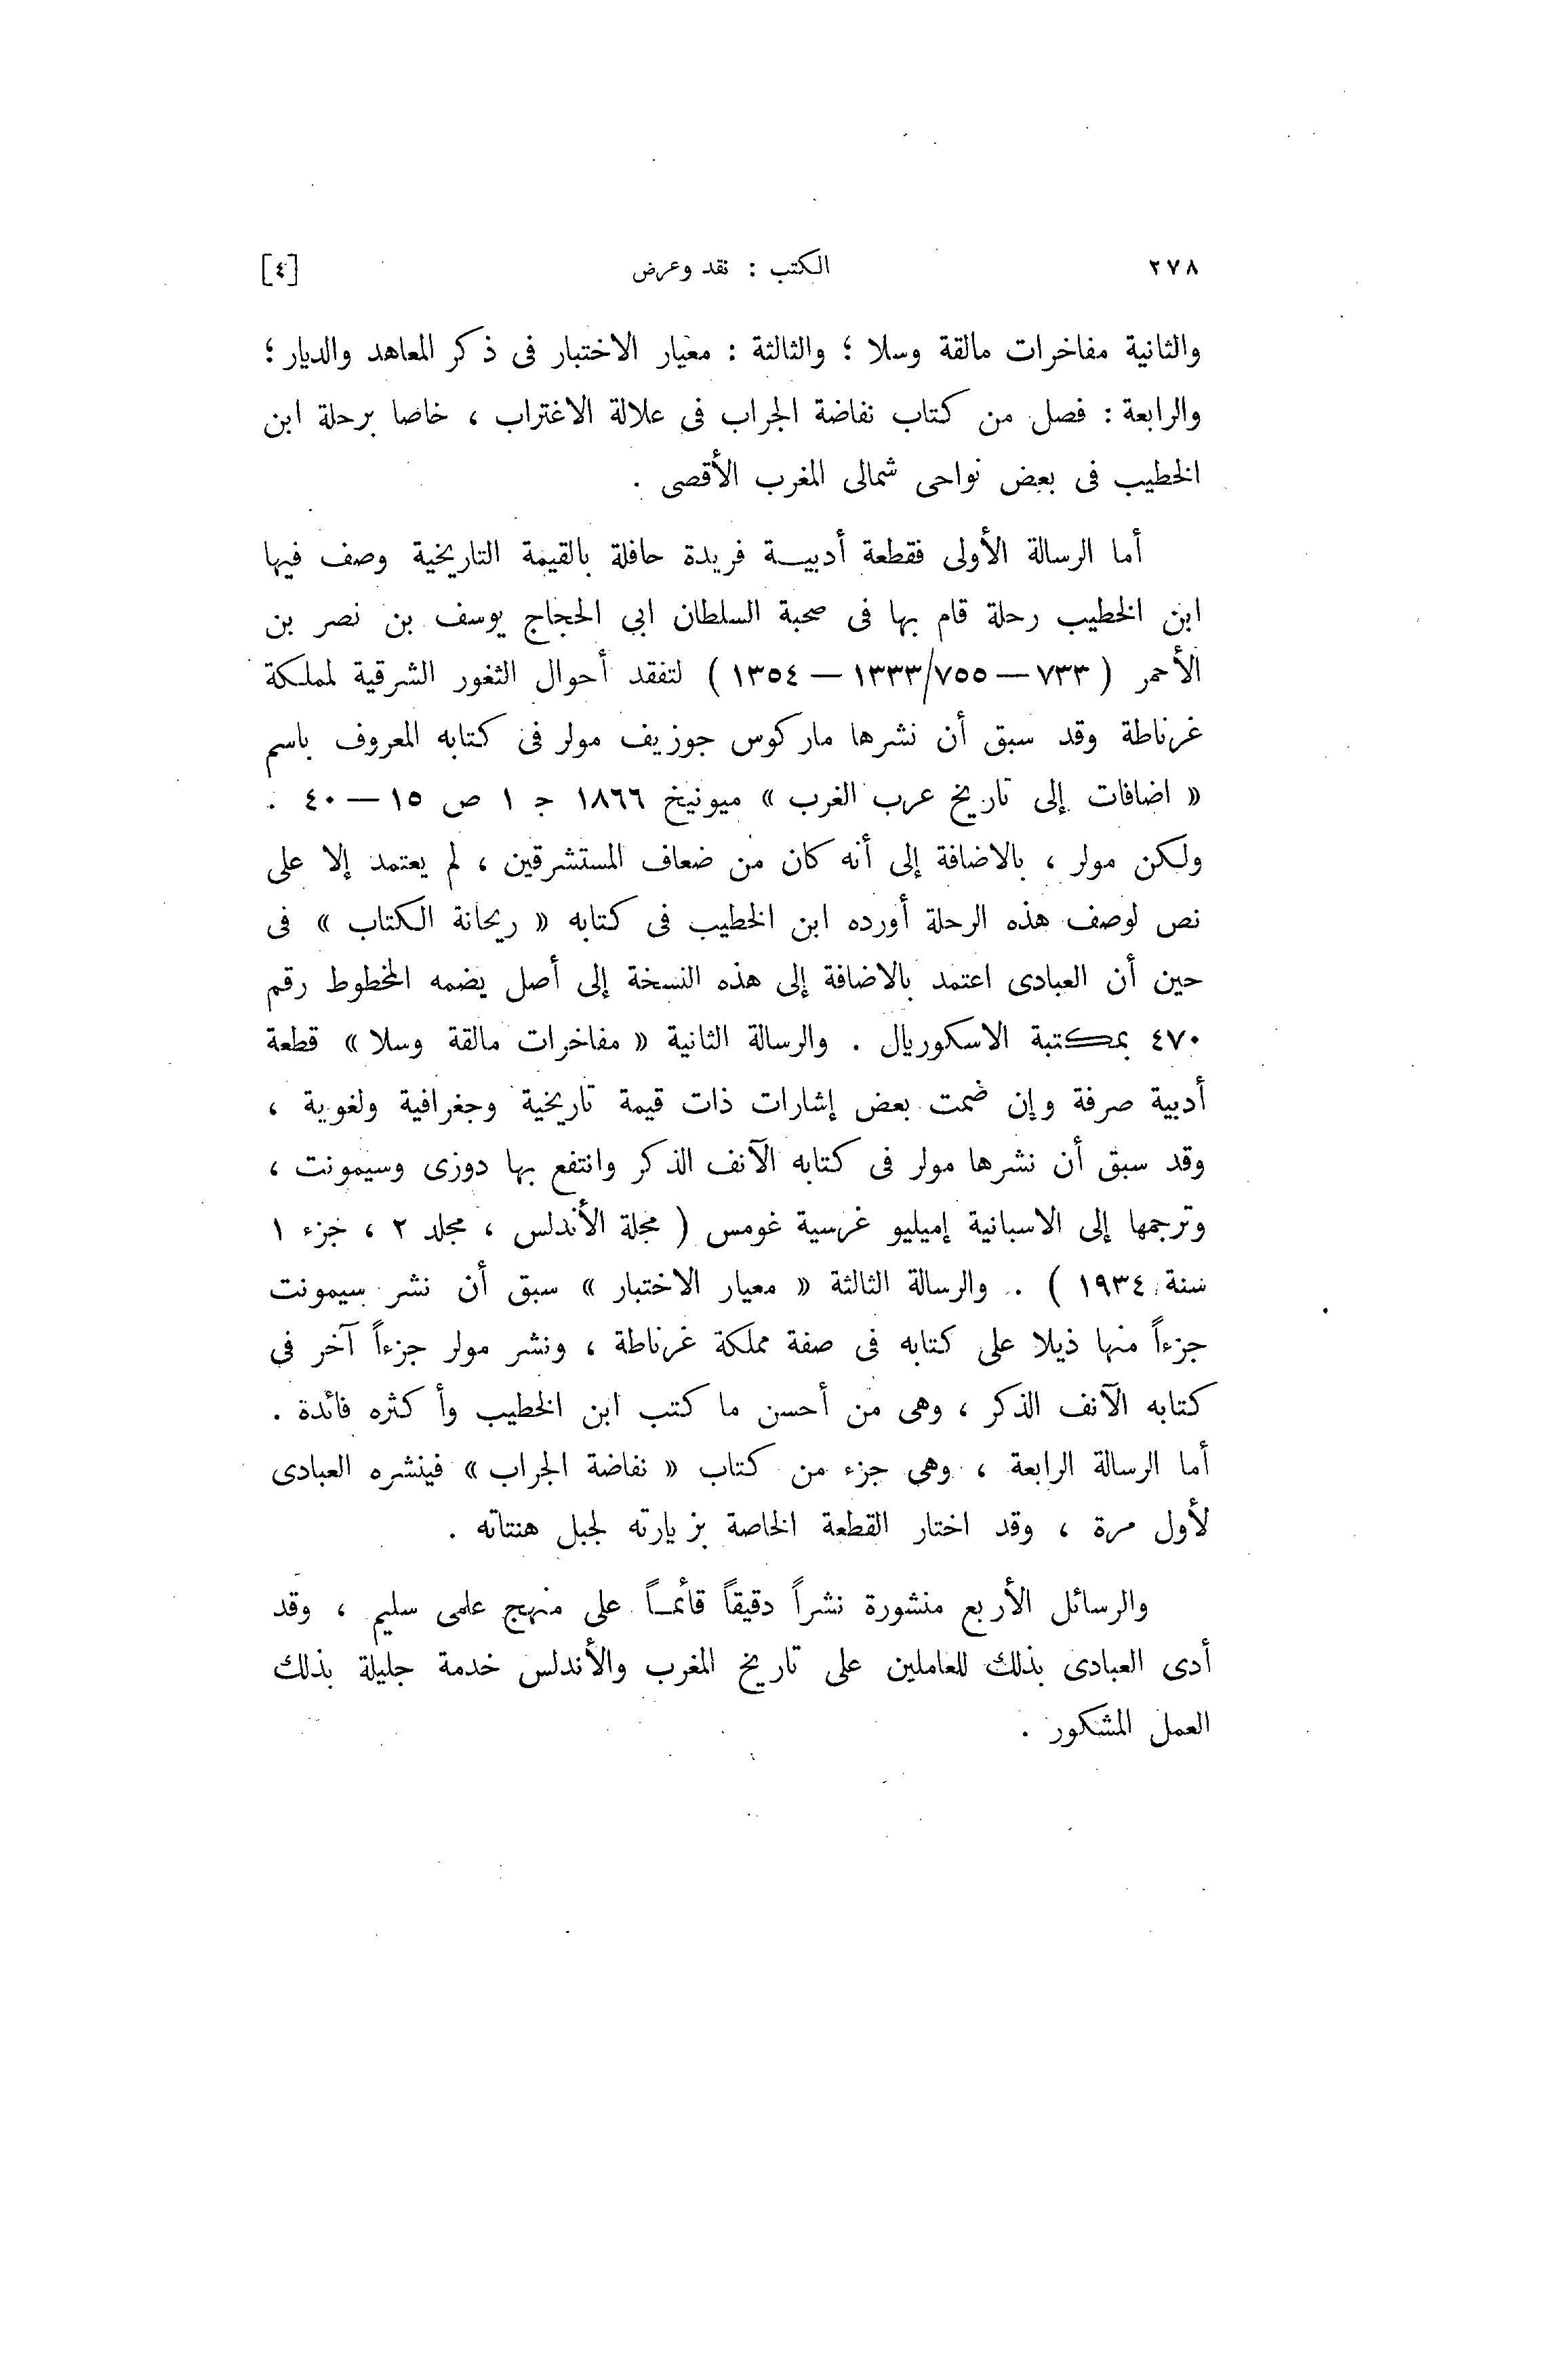 ٢٧٨ الكتب : نقد وعرض [٤]
والثانية مفاخرات مالقة وسلا ؛ والثالثة : معيار الاختبار فى ذكر المعاهد والديار ؛
والرابعة : فصل من كتاب نفاضة الجراب فى علالة الاغتراب ، خاصا برحلة ابن
الخطيب فى بعض نواحى شمالى المغرب الأقصى .
أما الرسالة الأولى فقطعة أدبيــة فريدة حافلة بالقيمة التاريخية وصف فيها
ابن الخطيب رحلة قام بها فى صحبة السلطان ابى الحجاج يوسف بن نصر بن
الأحمر ( ٧٣٣ — ١٣٣٣/٧٥٥ — ١٣٥٤ ) لتفقد أحوال الثغور الشرقية لمملكة
غرناطة وقد سبق أن نشرها ماركوس جوزيف مولر فى كتابه المعروف باسم
« اضافات إلى تاريخ عرب الغرب » ميونيخ ١٨٦٦ ج ١ ص ١٥ — ٤٠ .
ولكن مولر ، بالاضافة إلى أنه كان من ضعاف المستشرقين ، لم يعتمد إلا على
نص لوصف هذه الرحلة أورده ابن الخطيب فى كتابه « ريحانة الكتاب » فى
حين أن العبادى اعتمد بالاضافة إلى هذه النسخة إلى أصل يضمه المخطوط رقم
٤٧٠ بمكتبة الاسكوريال . والرسالة الثانية « مفاخرات مالقة وسلا » قطعة
أدبية صرفة وإن ضمت بعض إشارات ذات قيمة تاريخية وجغرافية ولغوية ،
وقد سبق أن نشرها مولر فى كتابه الآنف الذكر وانتفع بها دوزى وسيمونت ،
وترجمها إلى الاسبانية إميليو غرسية غومس ( مجلة الأندلس ، مجلد ٢ ، جزء ١
سنة ١٩٣٤ ) . والرسالة الثالثة « معيار الاختبار » سبق أن نشر سيمونت
جزءاً منها ذيلا على كتابه فى صفة مملكة غرناطة ، ونشر مولر جزءاً آخر فى
كتابه الآنف الذكر ، وهى من أحسن ما كتب ابن الخطيب وأكثره فائدة .
أما الرسالة الرابعة ، وهى جزء من كتاب « نفاضة الجراب » فينشره العبادى
لأول مرة ، وقد اختار القطعة الخاصة بزيارته لجبل هنتاته .
والرسائل الأربع منشورة نشراً دقيقاً قائمــاً على منهج علمى سليم ، وقد
أدى العبادى بذلك للعاملين على تاريخ المغرب والأندلس خدمة جليلة بذلك
العمل المشكور .